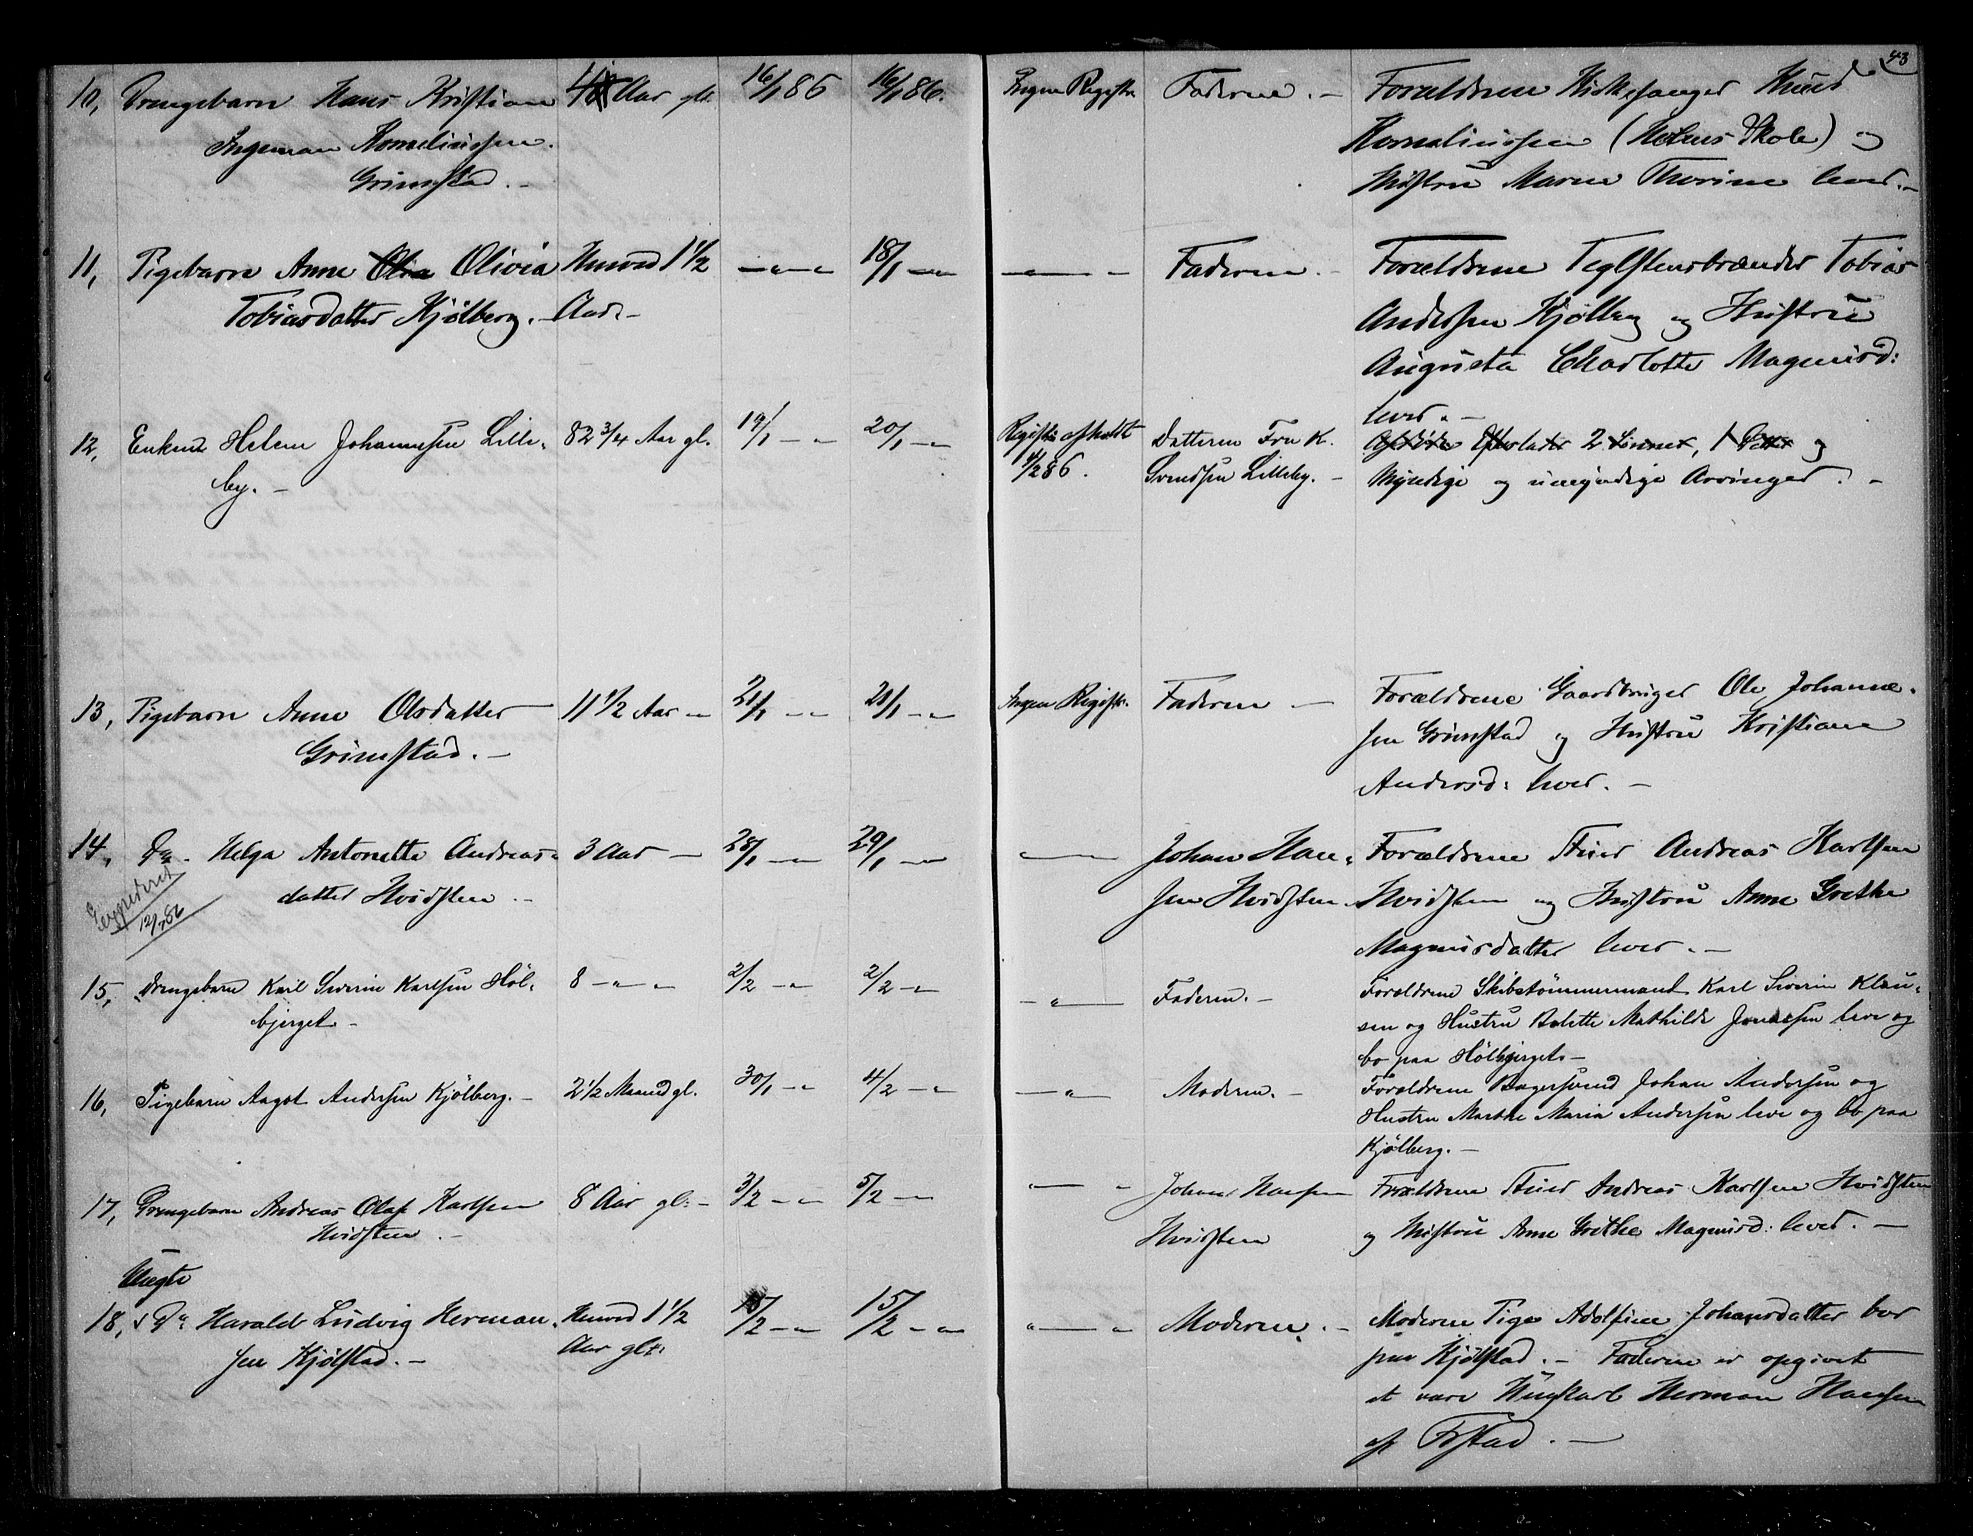 43
10, Drengebarn Hans Kristian 4 Aar gl. 16/1 86 16/1 86. Ingen Registr. Faderen. — Forældrene Kirkesanger Knud
Ingeman Korneliussen. Korneliussen (Holens Skole) og
Grimstad. — Hustru Maren Thorine lever. —
11, Pigebarn Anne Olea Olivia Henved 1 1/2 — " — 18/1 — " — " — Faderen. — Forældrene Teglstensbrænder Tobias
Tobiasdatter Kjølberg. — Aar. — Andersen Kjølberg og Hustru
Augusta Charlotte Magnusd:
lever. —
12, Enken Helene Johannesen Lille- 82 3/4 Aar gl. 19/1 — " 20/1 — " Registr. afholdt Datteren Fru K. Afdøde Efterlader 2 Sønner, 1 Datter og
by. — 4/2 86. Svendsen Lilleby. — Myndige og umyndige Arvinger. —
13, Pigebarn Anne Olsdatter 11 1/2 Aar — " 21/1 — " 21/1 — " Ingen Registr. Faderen — Forældrene Gaardbruger Ole Johanne-
Grimstad. — sen Grimstad og Hustru Kristiane
Andersd: lever. —
14, Do. Helga Antonette Andreas- 3 Aar — 28/1 — " 29/1 — " — " — Johan Han- Forældrene Stuer Andreas Karlsen
datter Hvidsten — sen Hvidsten. Hvidsten og Hustru Anne Grethe
Expederet
12/ 86
Magnusdatter lever. —
15, Drengebarn Karl Severin Karlsen Høl- 8 — " — " 2/2 — " 2/2 — " — " — Faderen. — Forældrene Skibstømmermand Karl Severin Klau-
bjerget — sen og Hustru Bolette Mathilde Jonassen leve og
bo paa Hølbjerget —
16, Pigebarn Aagot Andersen Kjølberg. — 2 1/2 Maaned gl. 30/1 — " 4/2 — " — " — Moderen. — Forældrene Bagersvend Johan Andersen og
Hustru Marthe Maria Andersen leve og bo paa
Kjølberg. —
17, Drengebarn Andreas Olaf Karlsen 8 Aar gl: — 3/2 — " 5/2 — " — " Johan Hansen Forældrene Stuer Andreas Karlsen Hvidsten
Hvidsten — Hvidsten og Hustru Anne Grethe Magnusd: lever. —
Uægte
18, Do Harald Ludvig Herman- Henved 1 1/2 /2 — " 15/2 — " " — " Moderen. — Moderen Pige Adolfine Johansdatter bor
sen Kjølstad. — Aar gl: paa Kjølstad. — Faderen er opgivet
at være Ungkarl Herman Hansen
af Tofstad. —